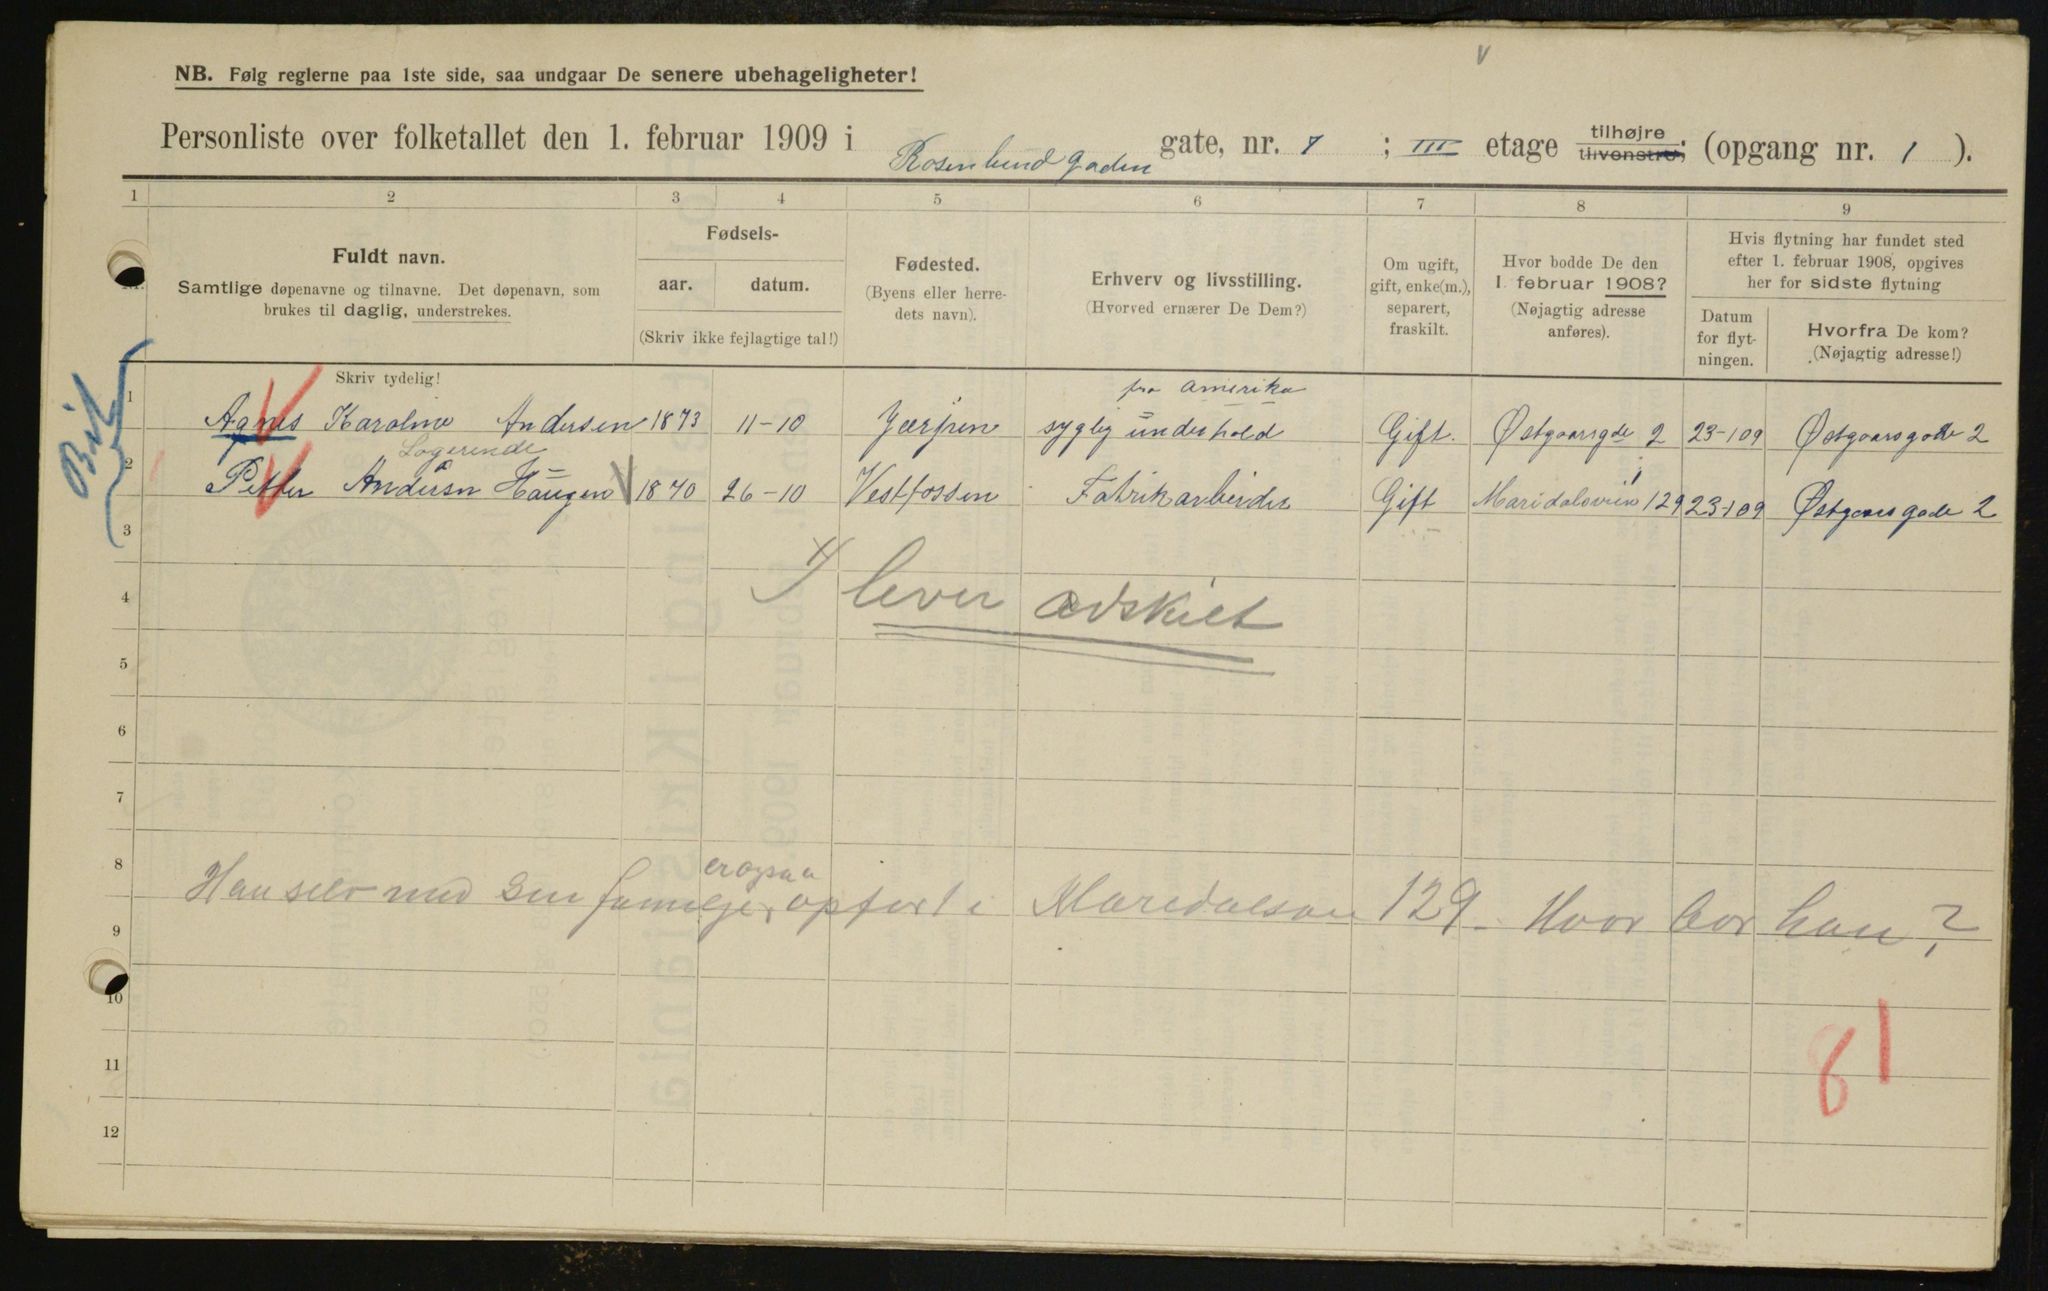 NB. Følg reglerne paa 1ste side, saa undgaar De senere ubehageligheter!
Personliste over folketallet den 1. februar 1909 i Rosenlund gaden gate, nr. 7 ; III etage tilhøjre tilvenstre; (opgang nr. 1 ).
1 2 3 4 5 6 7 8 9
Fuldt navn.
Samtlige døpenavne og tilnavne. Det døpenavn, som
brukes til daglig, understrekes.
Fødsels-
aar. datum.
(Skriv ikke fejlagtige tal!)
Fødested.
(Byens eller herre-
dets navn).
Erhverv og livsstilling.
(Hvorved ernærer De Dem?)
Om ugift,
gift, enke(m.),
separert,
fraskilt.
Hvor bodde De den
1. februar 1908?
(Nøjagtig adresse
anføres).
Hvis flytning har fundet sted
efter 1. februar 1908, opgives
her for sidste flytning
Datum
for flyt-
ningen.
Hvorfra De kom?
(Nøjagtig adresse!)
Skriv tydelig!
fra Amerika
1 Agnes Karoline Andersen 1873 11-10 Jærpen underhold Gift. Østgaarsgde 2 23-1 09 Østgaarsgade 2
Logerende
2 Petter Andersn Haugen 1870 26-10 Vestfossen Fabrikarbeider Gift Maridalsvein 129 23-1 09 Østgaarsgade 2
3
lever adskilt
4
5
6
7
8
er ogsaa
Han selv med sin familje, opført i Maridalsvn 129. Hvor bor han?
9
10
11
12
81